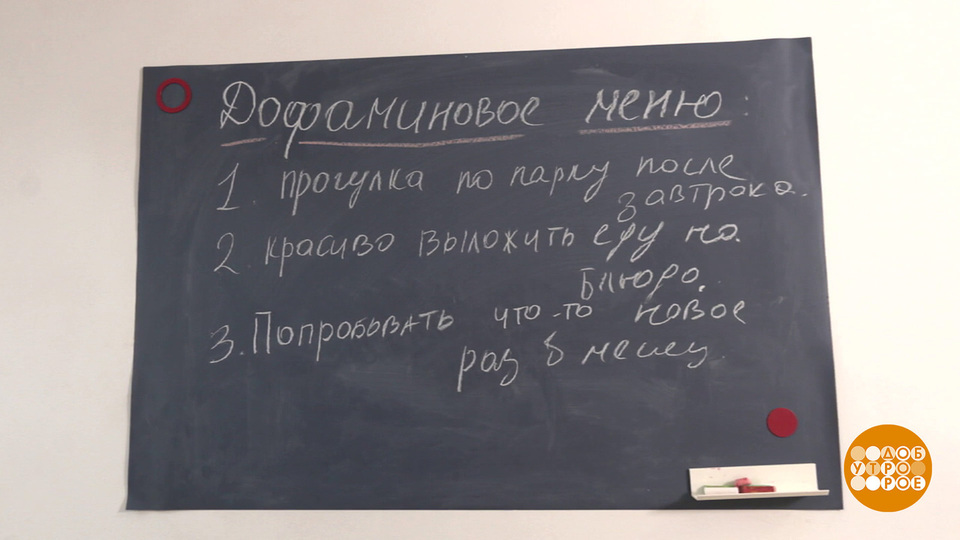 Дофаминовое меню:
1. прогулка по парку после
завтрака.
2. красиво выложить еду на
блюдо.
3. Попробовать что-то новое
раз в месяц.
ДОБ
УТРО
РОЕ